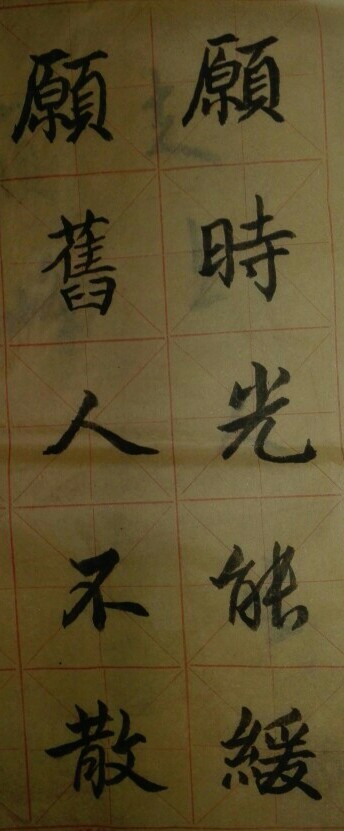 願時光能緩
願舊人不散